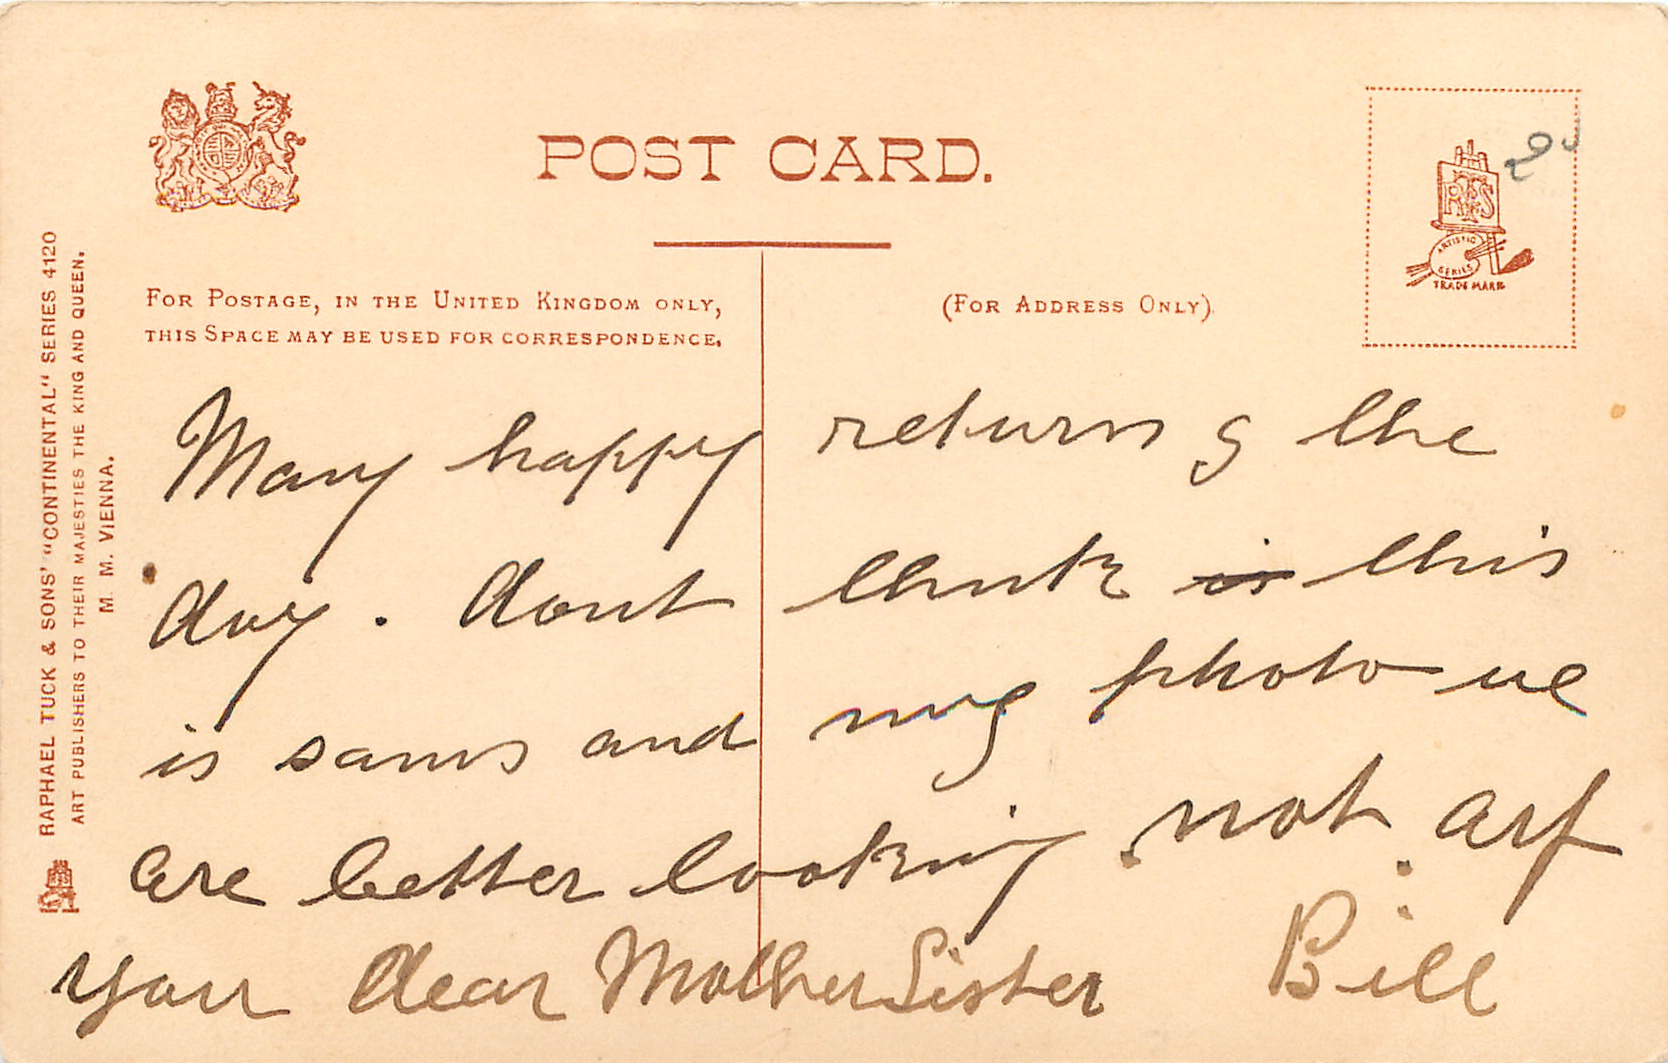 POST CARD.
FOR POSTAGE, IN THE UNITED KINGDOM ONLY,
THIS SPACE MAY BE USED FOR CORRESPONDENCE.
(FOR ADDRESS ONLY).
RT&S
ARTISTIC
SERIES
TRADE MARK
RAPHAEL TUCK & SONS' "CONTINENTAL" SERIES 4120
ART PUBLISHERS TO THEIR MAJESTIES THE KING AND QUEEN.
M. M. VIENNA.
Many happy returns of the
day. dont think is this
is and my photo we
are better looking. not
your dear Mother Sister Bill